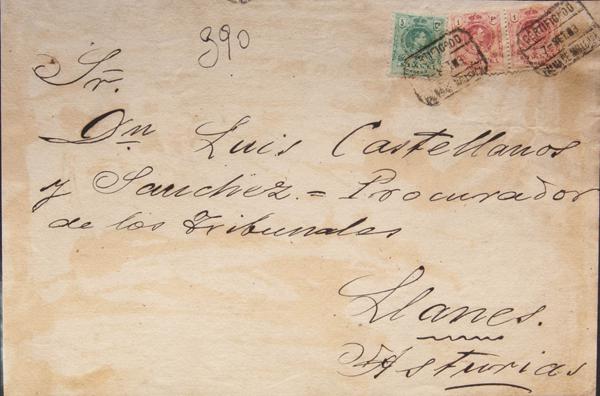 390
Sr.
Dn Luis Castellanos
y Sanchez = Procurador
de los Tribunales
Llanes.
Asturias